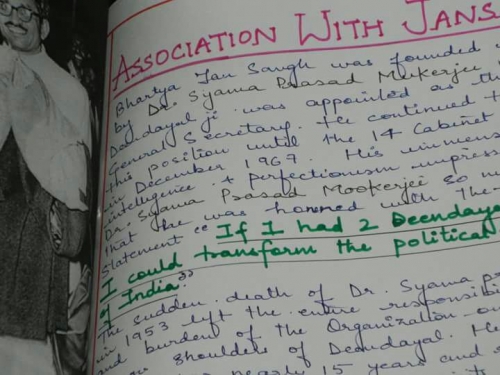 ASSOCIATION WITH JANS
Bhartya Jan Sangh was founded
by Dr. Syama Prasad Mukerjee
Deendayal ji was appointed as th
General Secretary. He continued t
this position until the 14 Cabinet
in December 1967. His
intelligence & perfectionism impress
Dr. Syama Prasad Mookerjee so m
that he was honored with the
Statement " If I had 2 Deendaya
I could transform the political
of India"
The sudden death of Dr. Syama p
in 1953 left the entire responsibil
and burden of the Organization on
shoulders of Deendayal. He
nearly 15 years and